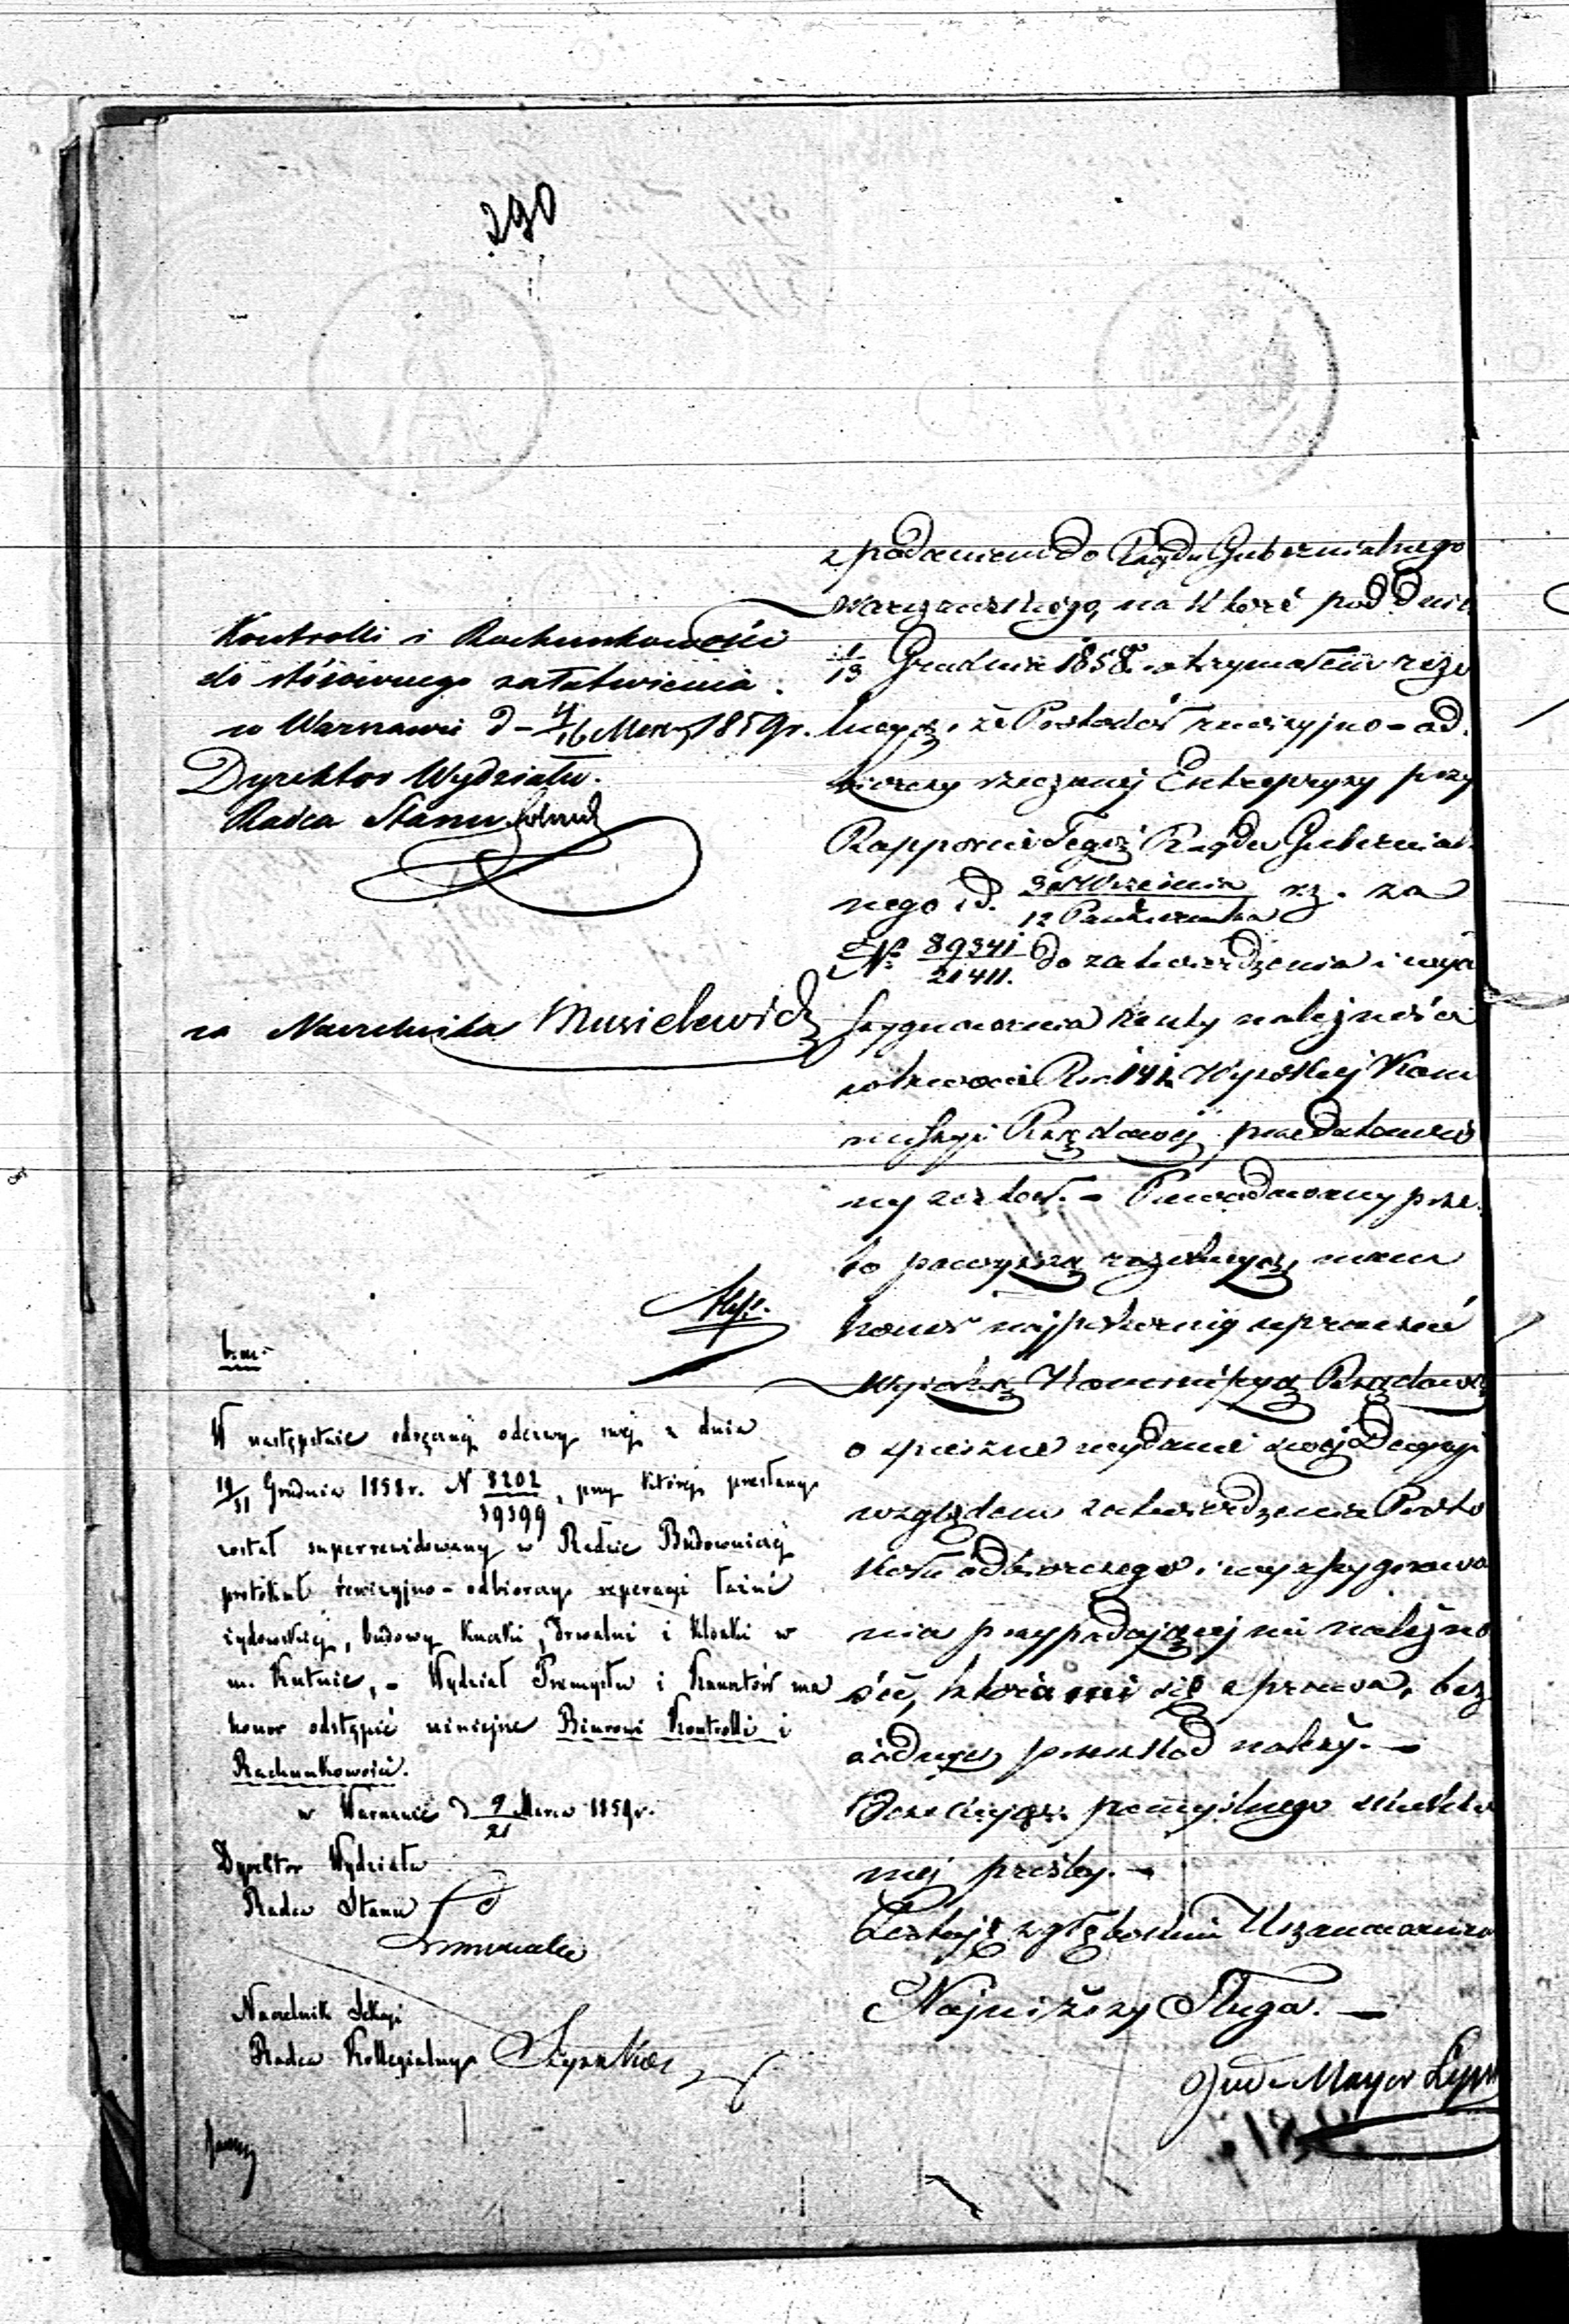 290
Kontrolli i Rachunkowości
do stósownego załatwienia.
w Warszawie d. 4/16 Marca 1859 r.
Dyrektor Wydziału.
Radca Stanu
za Naczelnika Musielewicz
b.m.
W następstwie odręcznej odezwy swej z dnia
19/31 Grudnia 1858 r. N 8202/39399, przy której przesłany
został superrewidowany w Radzie Budowniczej
protokół rewizyjno-odbiorczy reperacyi łaźni
żydowskiej, budowy kuczki, drwalni i kloaki w
m. Kutnie, - Wydział Przemysłu i Kunsztów ma
honor odstąpić niniejsze Biurowi Kontrolli i
Rachunkowości.
w Warszawie d 9/21 Marca 1859 r.
Dyrektor Wydziału
Radca Stanu
Naczelnik Sekcyi
Radca Kollegialny
z podaniem do Rządu Gubernialnego
Warszawskiego, na które pod dniem
1/13 Grudnia 1858 r. otrzymałem rezo
lucyą, że Protokół rewizyjno-od
biorczy rzeczonej Entrepryzy przy
Rapporcie Tegoż Rządu Gubernial
nego d. 30 Września/12 Października rz. za
№ 89341/21411. do zatwierdzenia i wya
ssygnowania reszty należności
w kwocie Rs. 141 Wysokiej Kom
missyi Rządowej przedstawio
ny został. - Powodowany prze
to powyższą rezolucyą, mam
honor najpokorniej upraszać
Wysoką Kommissyą Rządową
o spieszne wydanie swej Decyzyi
względem zatwierdzenia Proto
kółu odbiorczego i wyassygnowa
nia przypadającej mi należno
ści, która mi się z prawa, bez
żadnych przeszkód należy. -
Oczekując pomyślnego skutku
mej prośby. -
Zostaję z głębokim Uszanowaniem
Najniższy Sługa. -
Juda Mayer Lypm